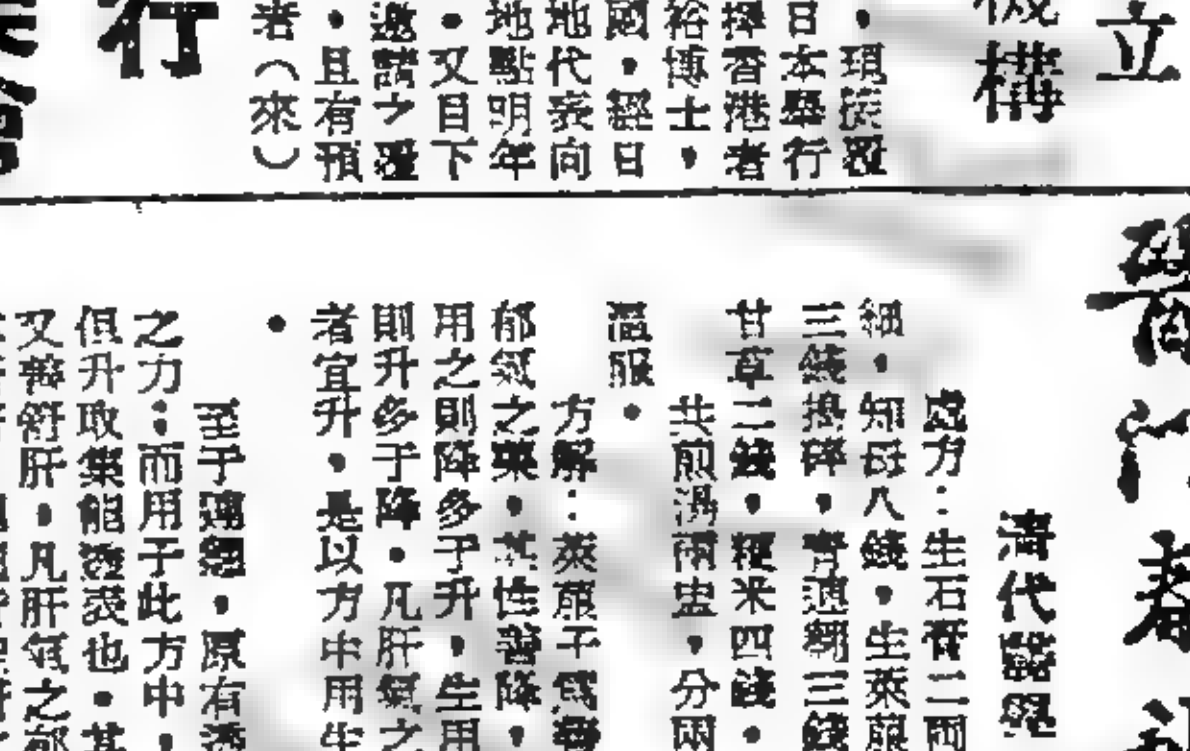 立
機構
・現族覆
日本舉行
擇香港者
裕博士，
國・經日
地代表向
地點明年
・又目下
邀請之覆
・且有預
者（來）
行
醫門春
清代醫
處方：生石膏二兩
細・知母八錢・生萊菔
三錢搗碎，青連翹三錢
甘草二錢・粳米四錢・
共煎湯兩盅，分兩
溫服・
方解：萊菔子為
郁氣之藥・其性善降，
用之則降多于升，生用
則升多于降・凡肝氣之
者宜升・是以方中用生
・
至于連翹，原有透
之力；而用于此方中，
俱升取藥能透表也・其
又善舒肝・凡肝氣之郁